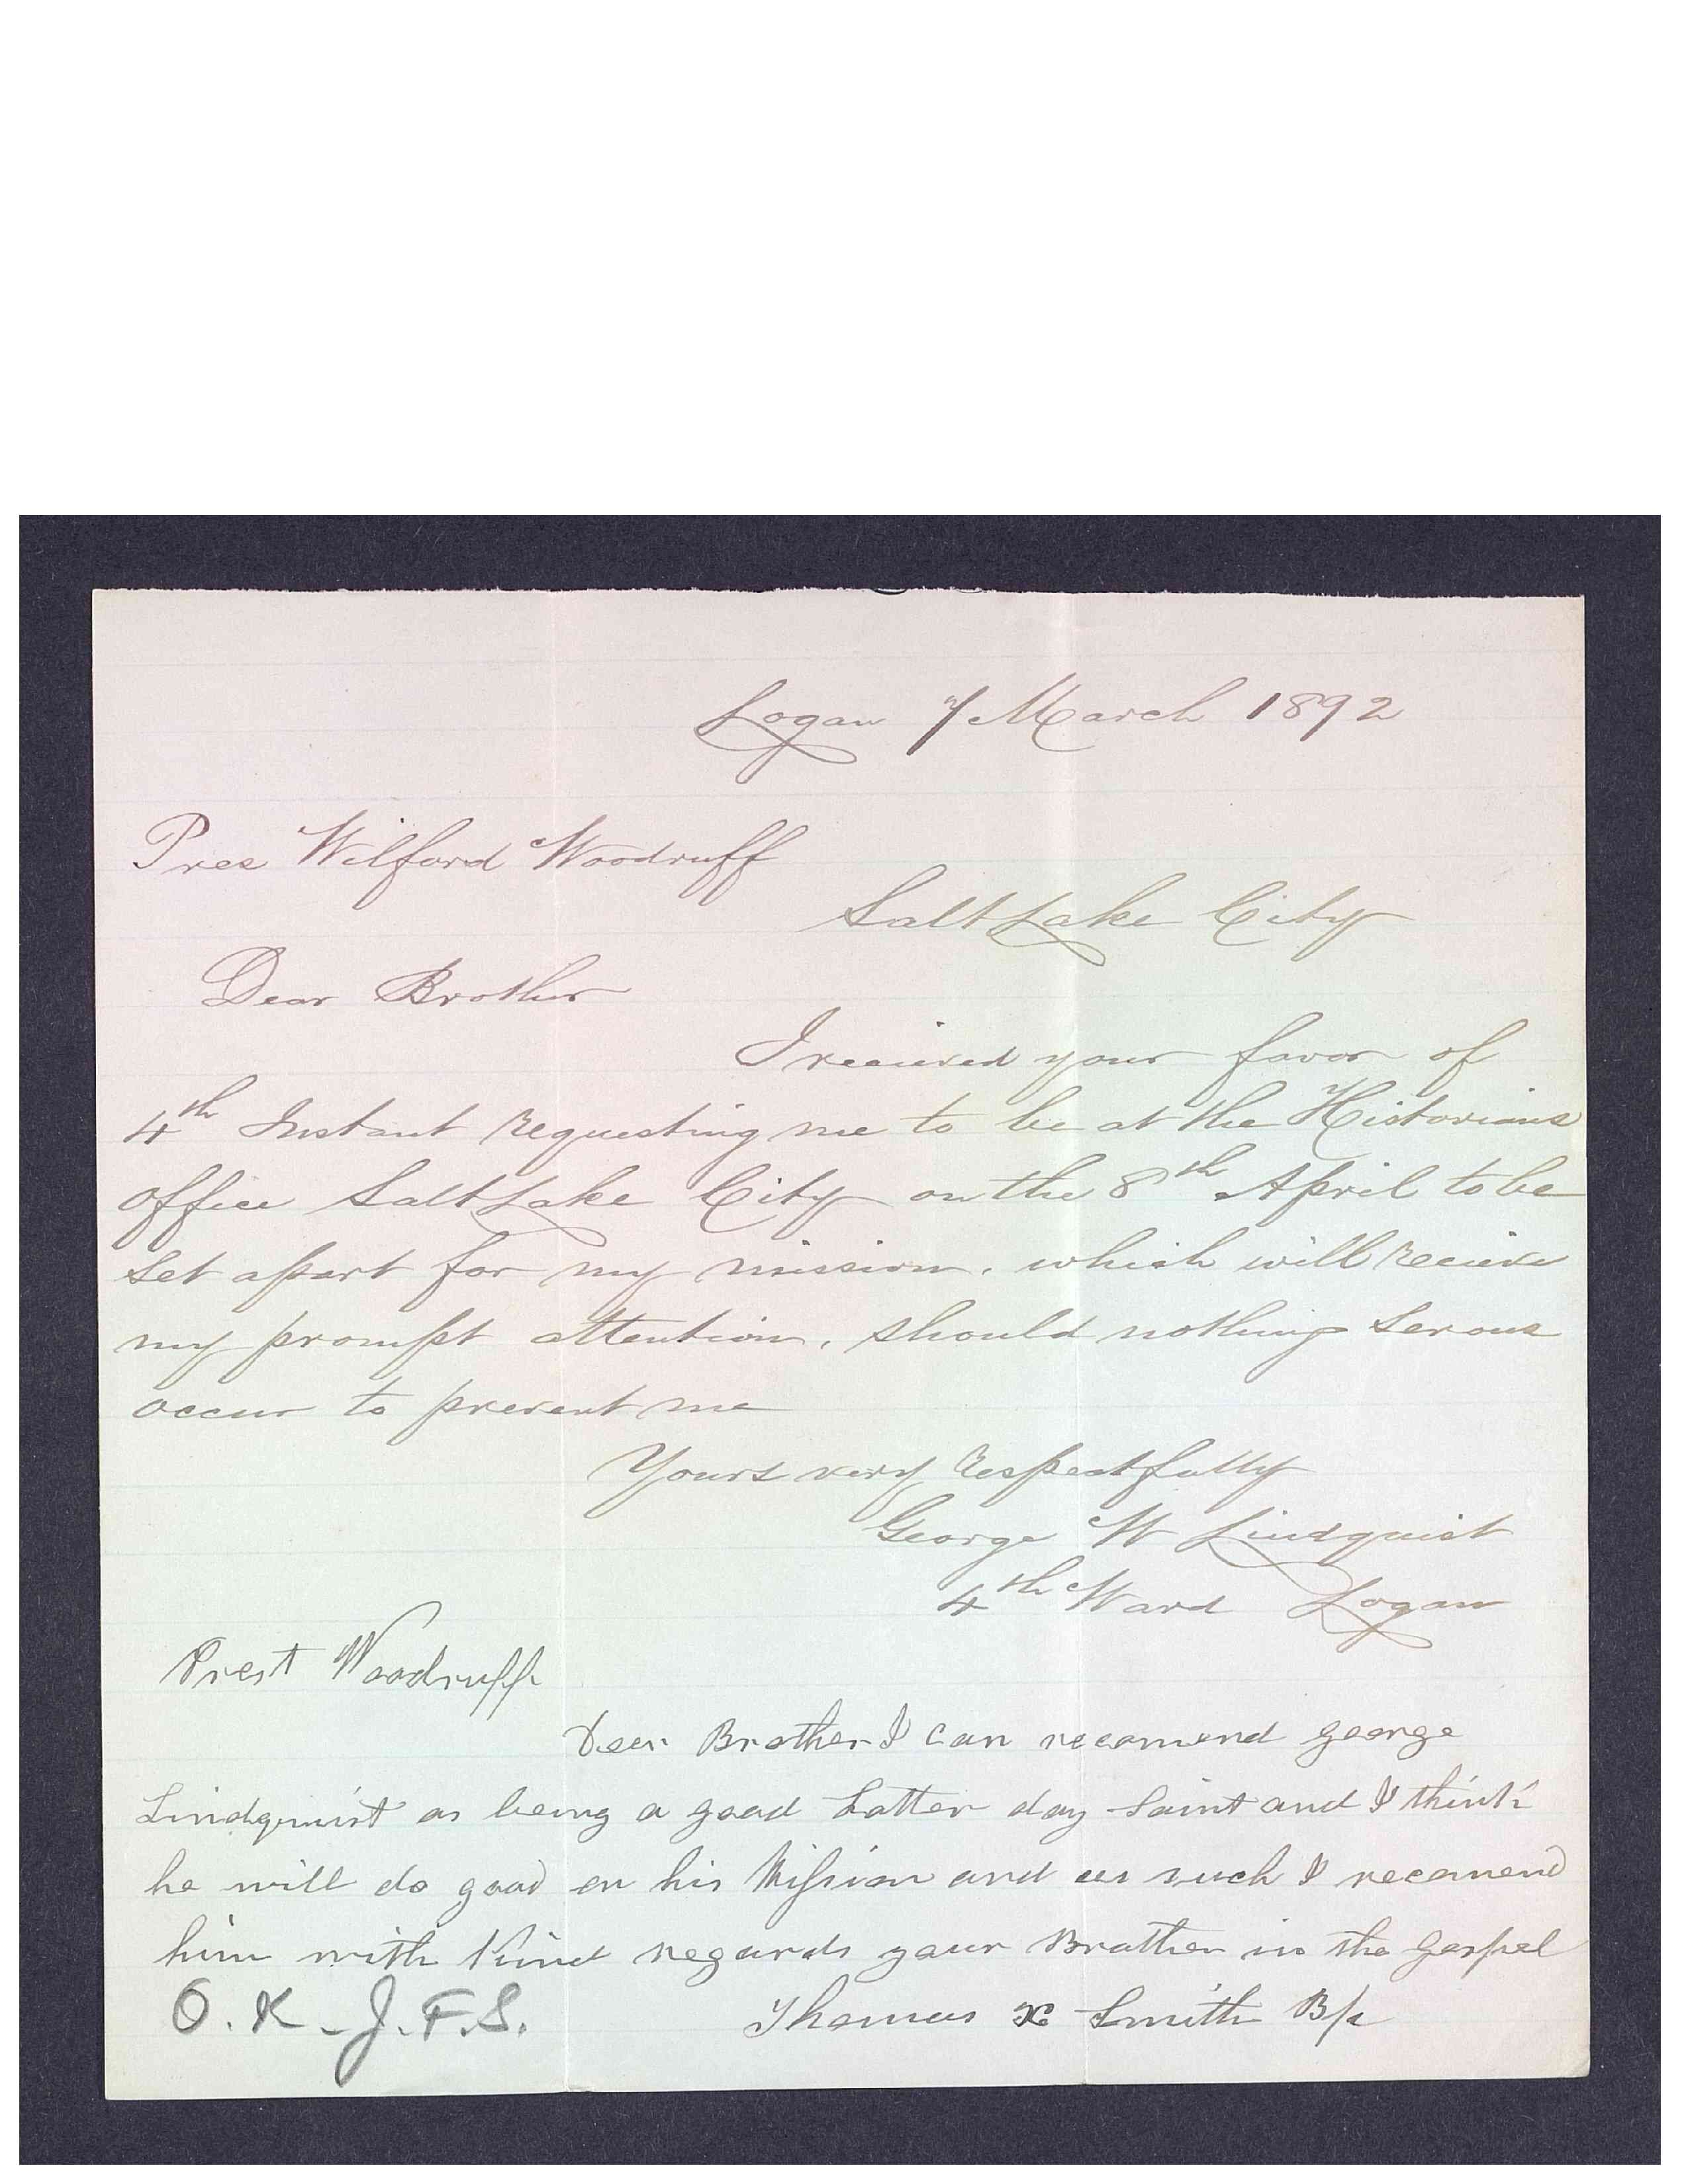 Logan 7 March 1892
Pres Wilford Woodruff
Salt Lake City
Dear Brother
I recieved your favor of
4th Instant requesting me to be at the Historians
office Salt Lake City on the 8th April to be
set apart for my mission, which will recieve
my prompt attention, should nothing serous
occur to prevent me
Yours very respectfully
George W Lindquist
4th Ward Logan
Prest Woodruff
Dear Brother I can recomend george
Lindquist as being a good Latter day Saint and I think
he will do good on his Mission and as such I recomend
him with Kind regards your Brother in the gospel
Thomas X Smith Bp
O.K. - J.F.S.